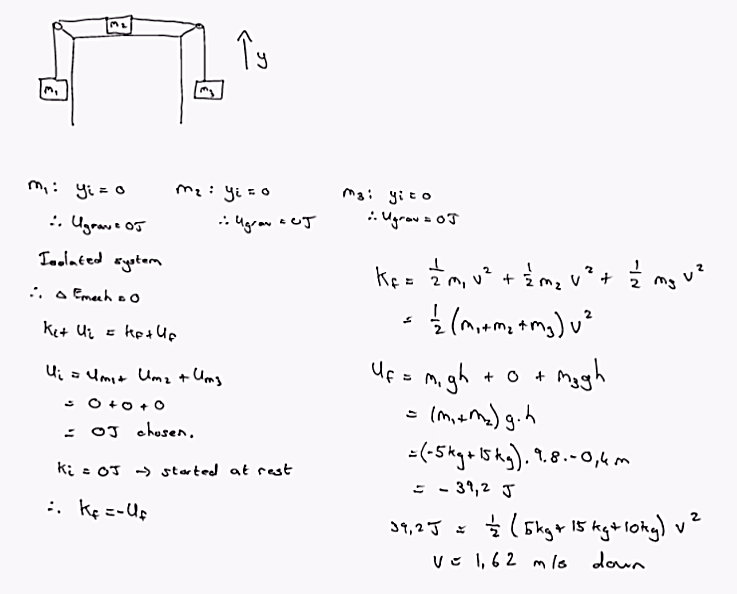 m₂
y
m₁
m₃
m₁: yi = 0 m₂: yi = 0 m₃: yi = 0
∴ Ugrav = 0J ∴ Ugrav = 0J ∴ Ugrav = 0J
Isolated system
∴ Δ Emech = 0
Ki + Ui = Kf + Uf
Ui = Um₁ + Um₂ + Um₃
= 0 + 0 + 0
= 0J chosen.
Ki = 0J → started at rest
∴ Kf = -Uf
Kf = 1/2 m₁ v² + 1/2 m₂ v² + 1/2 m₃ v²
= 1/2 (m₁+m₂+m₃) v²
Uf = m₁gh + 0 + m₃gh
= (m₁+m₂) g.h
= (-5kg + 15kg). 9.8. -0,4 m
= - 39,2 J
39,2J = 1/2 (5kg + 15kg + 10kg) v²
v = 1,62 m/s down